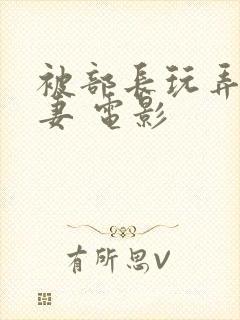 被部長玩弄
妻 電影
有所思V